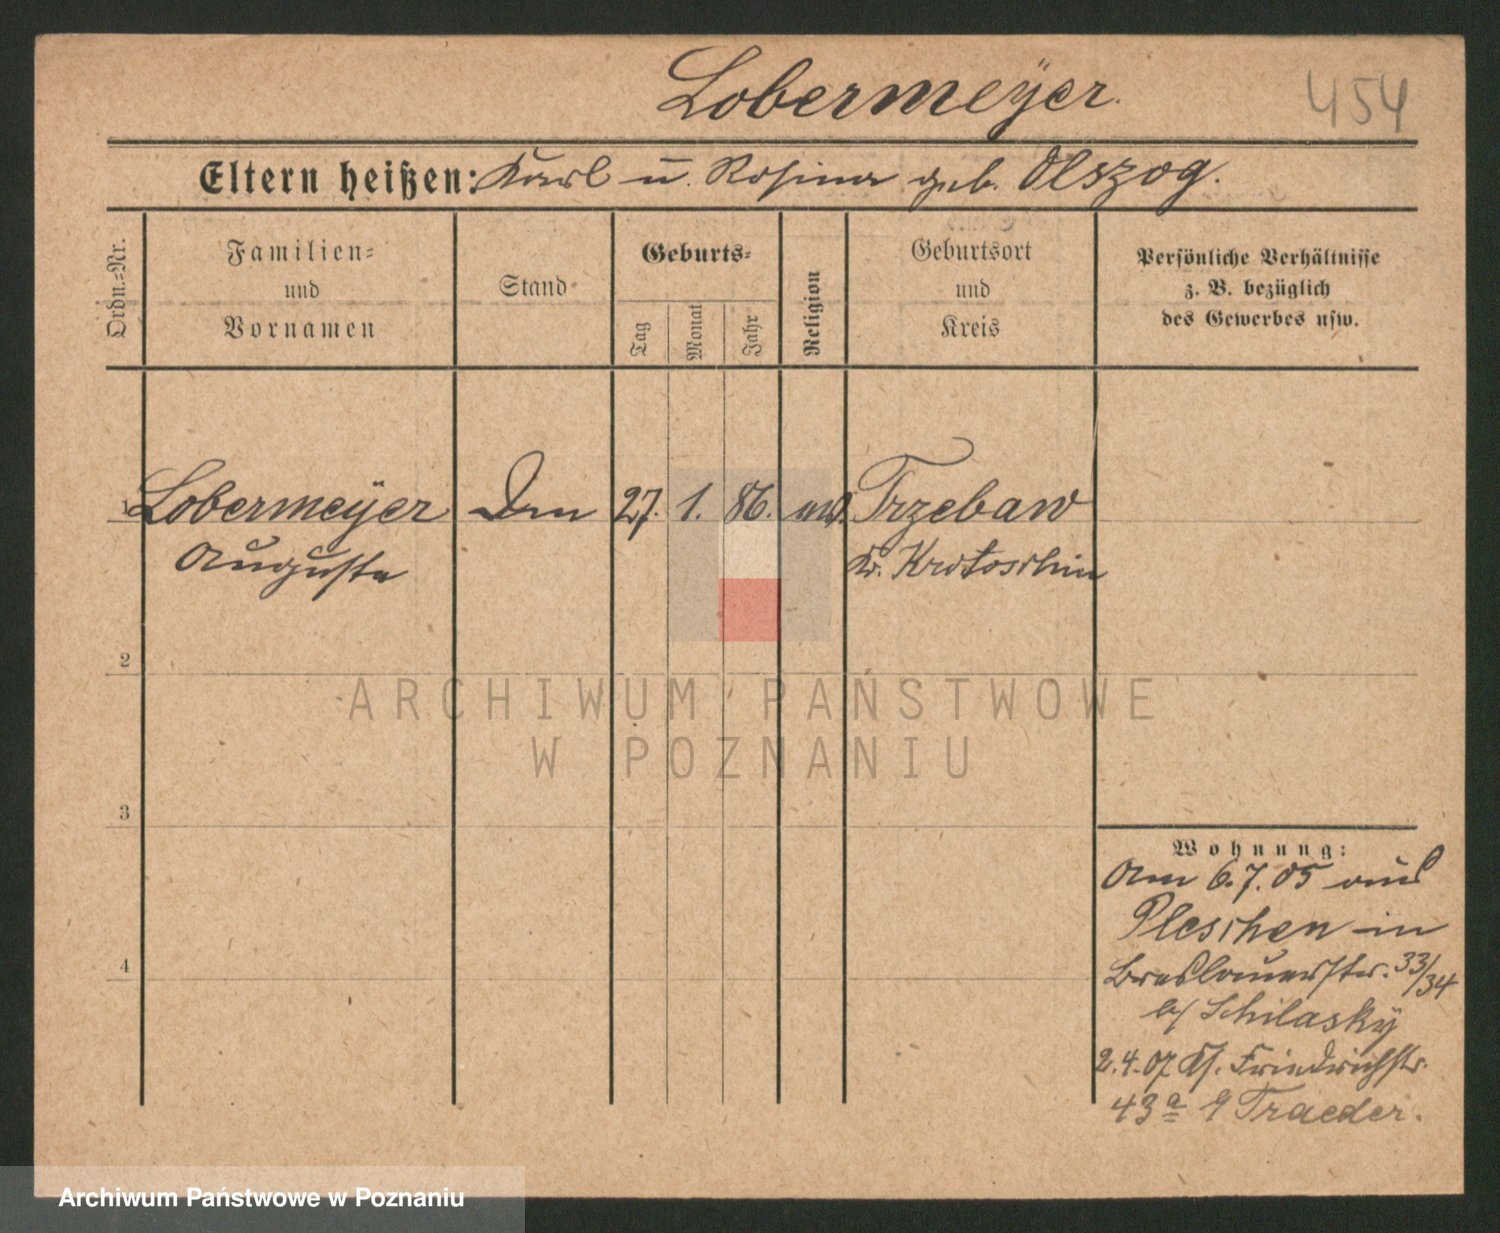 Lobermeÿer.
454
Eltern heißen: Karl u. Rosina geb. Olszog.
Ordn.-Nr.
Familien-
und
Vornamen
Stand
Geburts-
Tag
Monat
Jahr
Religion
Geburtsort
und
Kreis
Persönliche Verhältnisse
z. B. bezüglich
des Gewerbes usw.
1 Lobermeÿer 27. 1. 86. Trzebaw
Auguste Kr. Krotoschin
2
3
4
ARCHIWUM PAŃSTWOWE
W POZNANIU
Wohnung:
Am 6.7.05 aus
Pleschen in
Breslauerstr. 33/34
b/ Schilaskÿ
2.4.07 Friedrichstr.
43a Traeder.
Archiwum Państwowe w Poznaniu